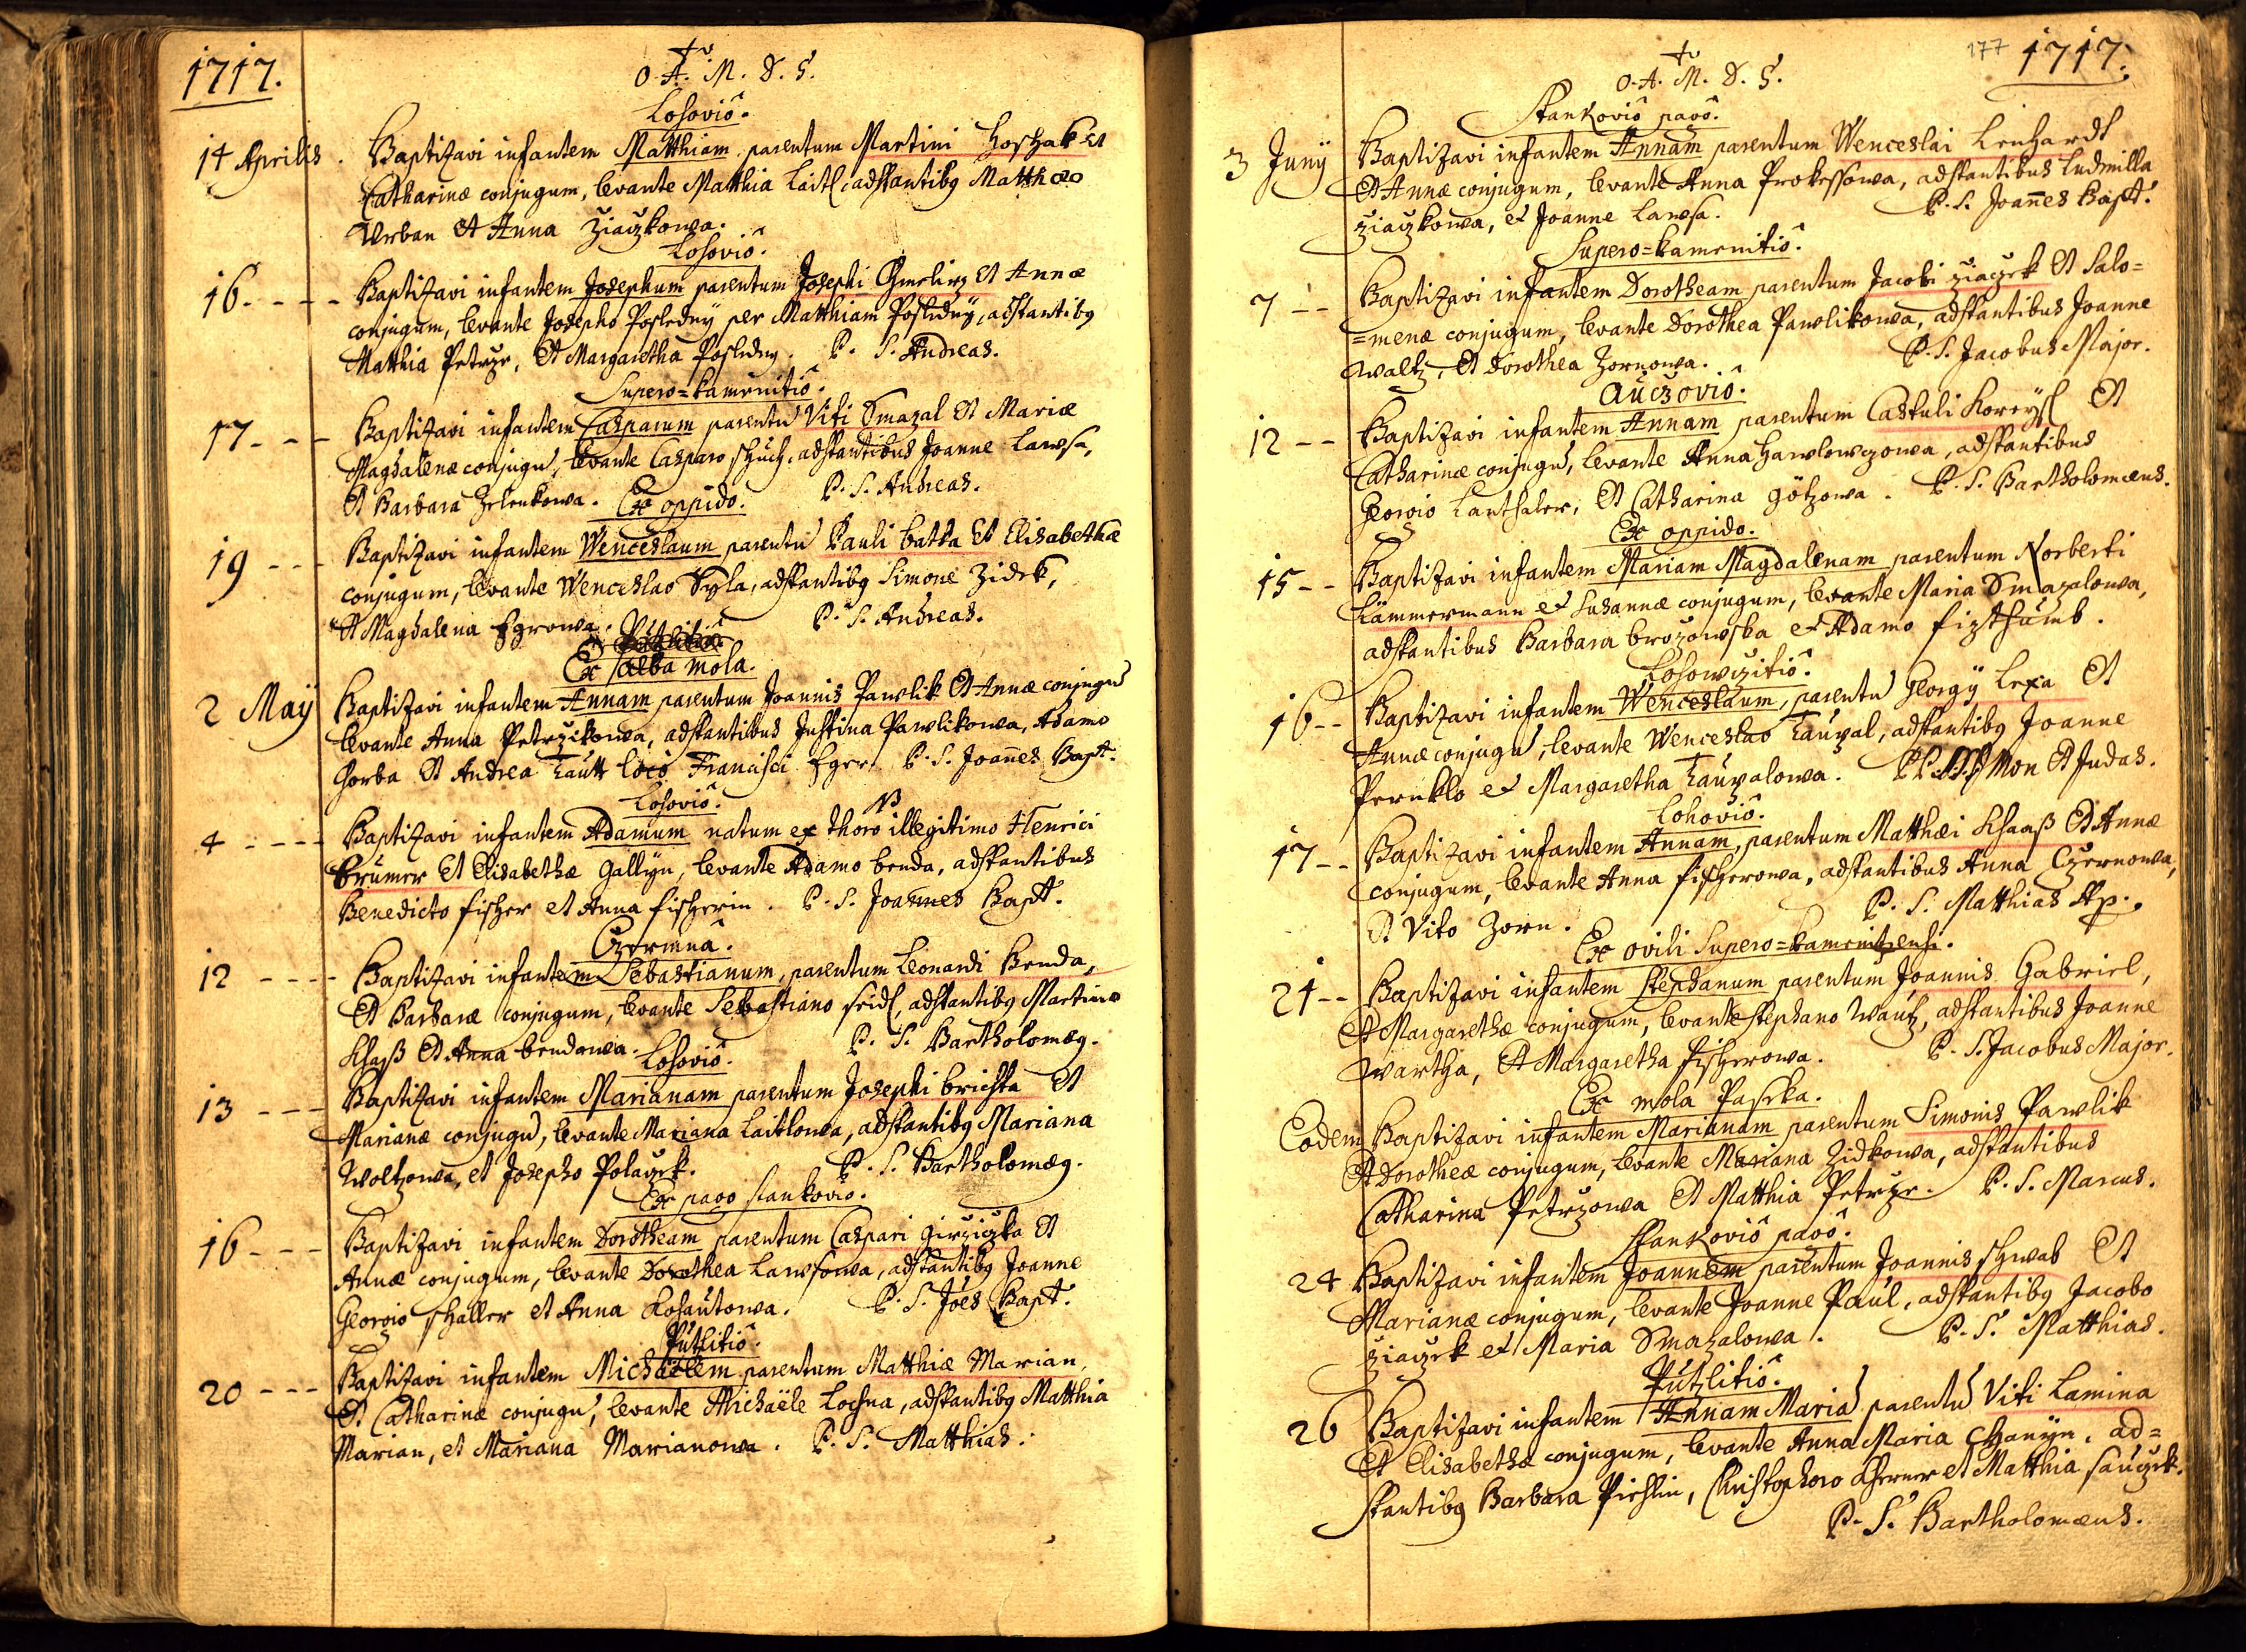 1717.
O. A. M. D. G.
Lohoviô.
14 Aprilis. Baptizavi infantem Matthiam parentum Martini Et
Catharinæ conjugum, levante Matthia Laitl, adstantibg Matthæo
Urban Et Anna Ziaczkowa.
Lohoviô.
16. - - - Baptizavi infantem Josephum parentum Josephi Et Annæ
conjugum, levante Josepho Posledny per Matthiam Posledny, adstantibg
Matthia Petrzr, Et Margaretha Posledny. P. S. Andreas.
Supero=kamenitiô.
17 - - - Baptizavi infantem Casparum parentũ Viti Smazal Et Mariæ
Magdalenæ conjugũ, levante Casparo schuch, adstantibus Joanne Lawsa,
Et Barbara Zelenkowa. P. S. Andreas.
Ex oppido.
19 - - - Baptizavi infantem Wenceslaum parentũ Pauli batta Et Elisabethæ
conjugum, levante Wenceslao Syla, adstantibg Simone Zidek,
Et Magdalena Egrowa. P. S. Andreas.
Ex alba mola.
2 Maÿ Baptizavi infantem Annam parentum Joannis Pawlik Et Annæ conjugũ
levante Anna Petrzikowa, adstantibus Justina Pawlikowa, Adamo
Gorba Et Andrea Kautt loco Francisci Eger. P. S. Joañes Bapt.
Lohoviô. NB
4 - - - - Baptizavi infantem Adamum natum ex thoro illegitimo Henrici
brumer Et Elisabethæ Gallÿn, levante Adamo benda, adstantibus
Benedicto fischer et Anna fischerin. P. S. Joannes Bapt.
Czerminâ.
12 - - - - Baptizavi infantem Sebastianum, parentum Leonardi Benda,
Et Barbaræ conjugum, levante Sebastiano seidl, adstantibg Martino
Khaß Et Anna bendowa. P. S. Bartholomæg.
Lohoviô.
13 - - - Baptizavi infantem Marianam parentum Josephi brichta Et
Marianæ conjugũ, levante Mariana Laitlowa, adstantibg Mariana
Woltzowa, et Josepho Polaczek. P. S. Bartholomæg.
Ex pago stankoviô.
16 - - - Baptizavi infantem Dorotheam parentum Caspari Girziczka Et
Annæ conjugum, levante Dorothea Lawsowa, adstantibg Joanne
Georgio schaller et Anna Kohautowa. P. S. Joes Bapt.
Putzlitiô.
20 - - - Baptizavi infantem Michaëlem parentum Matthiæ Marian,
Et Catharinæ conjugũ, levante Michaële Lochna, adstantibg Matthia
Marian, et Mariana Marianowa. P. S. Matthias.
177 1717.
O. A. M. D. G.
Stankoviô pagô.
3 Junÿ Baptizavi infantem Annam parentum Wenceslai Lenhardt
Et Annæ conjugum, levante Anna Prokessowa, adstantibus Ludmilla
Ziaczkowa, et Joanne Lawsa. P. S. Joañes Bapt.
Supero=kamenitiô.
7 - - Baptizavi infantem Dorotheam parentum Jacobi ziaczek Et Salo=
=menæ conjugum, levante Dorothea Pawlikowa, adstantibus Joanne
Waltz, Et Dorothea Zornowa. P. S. Jacobus Major.
Auczoviô.
12 - - Baptizavi infantem Annam parentum Castuli Koreysl Et
Catharinæ conjugũ, levante Anna Hawlowczowa, adstantibus
Georgio Lanthaler, Et Catharina Götzowa. P. S. Bartholomæus.
Ex oppido.
15 - - Baptizavi infantem Mariam Magdalenam parentum Norberti
Kämmermann et Susannæ conjugum, levante Maria Smazalowa,
adstantibus Barbara brozowska et Adamo fizthumb.
Lohowczitiô.
16 - - Baptizavi infantem Wenceslaum, parentũ Georgÿ Lexa Et
Annæ conjugũ, levante Wenceslao Kauzal, adstantibg Joanne
Pernklo et Margaretha Kauzalowa. PP. SS. Simon Et Judas.
Lohoviô.
17 - - Baptizavi infantem Annam, parentum Matthæi Khaaß Et Annæ
conjugum, levante Anna fischerowa, adstantibus Anna Czernowa,
Et Vito Zorn. P. S. Matthias Ap.
Ex ovili Supero=kamenitzensi.
21 - - Baptizavi infantem Stephanum parentum Joannis Gabriel,
Et Margarethæ conjugum, levante Stephano Wautz, adstantibus Joanne
Wartha, Et Margaretha fischerowa. P. S. Jacobus Major.
Ex mola Paseka.
Eodem Baptizavi infantem Marianam parentum Simonis Pawlik
Et Dorotheæ conjugum, levante Mariana Zidkowa, adstantibus
Catharina Petrzowa Et Matthia Petrzr. P. S. Marcus.
Stankoviô pagô.
24 Baptizavi infantem Joannem parentum Joannis schwab Et
Marianæ conjugum, levante Joanne Paul, adstantibg Jacobo
ziaczek et Maria Smazalowa. P. S. Matthias.
Putzlitiô.
26 Baptizavi infantem Annam Mariã parentũ Viti Lamina
Et Elisabethæ conjugum, levante Anna Maria Chanÿn, ad=
stantibg Barbara Pichlin, Christophoro et Matthia sauczek.
P. S. Bartholomæus.